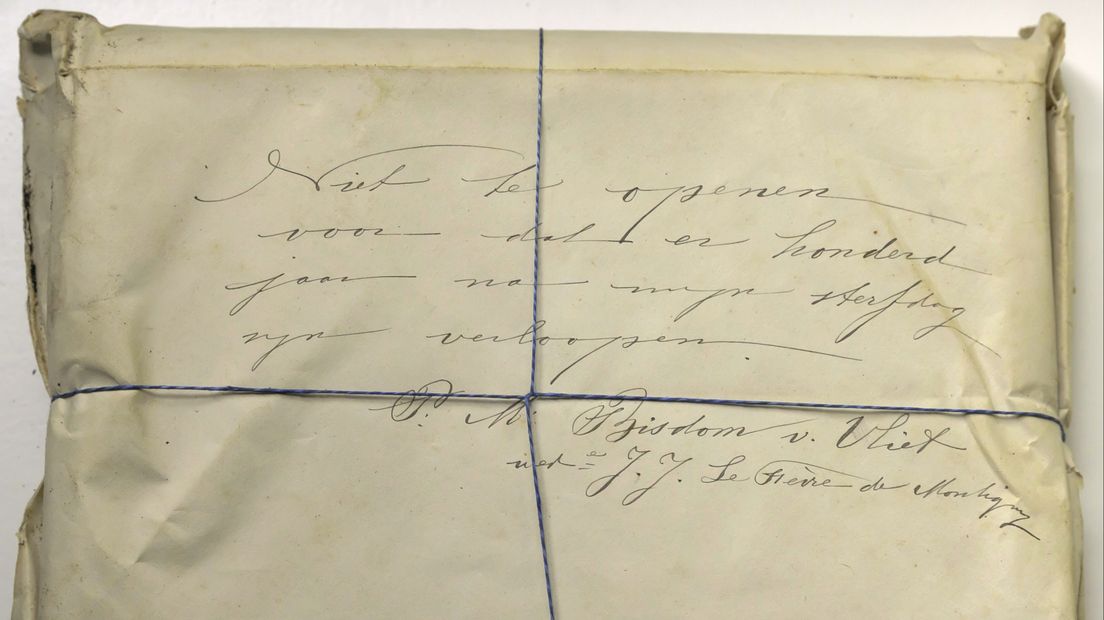 Niet te openen
voor dat er honderd
jaar na mijn sterfdag
zijn verloopen
P. M. Bisdom v. Vliet
wed=e J. J. Le Fèvre de Montigny